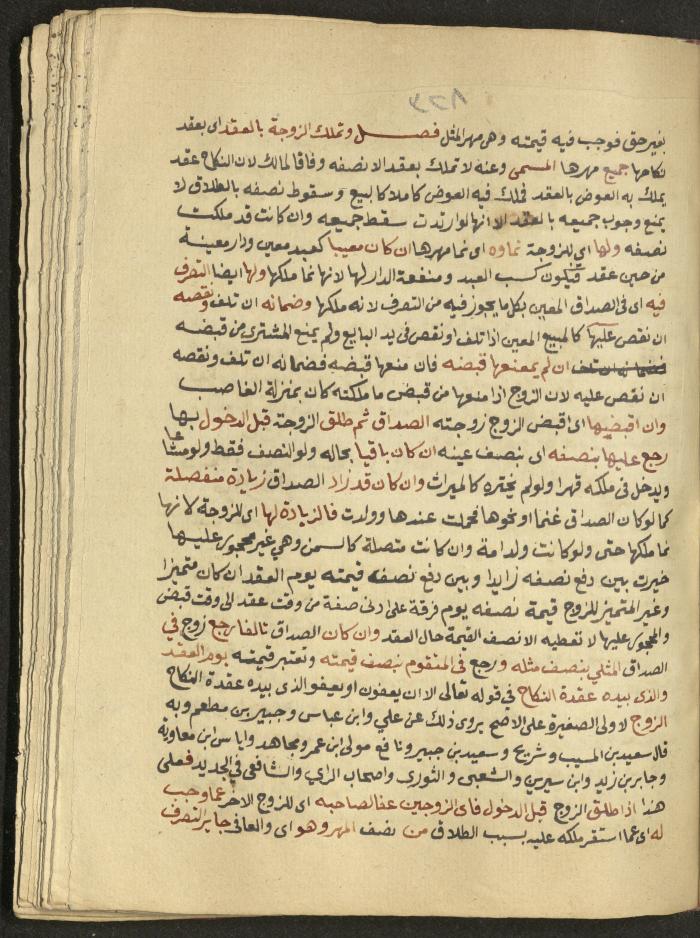 ١٢٢
بغير حق فوجب فيه قيمته وهى مهر المثل فصل وتملك الزوجة بالعقد اى بعقد
نكاحها جميع مهرها المسمى وعنه لا تملك بعقد الا نصفه وفاقا لمالك لان النكاح عقد
يملك به العوض بالعقد فملك فيه العوض كاملا كا لبيع وسقوط نصفه بالطلاق لا
يمنع وجوب جميعه بالعقد الا انها لو ارتدت سقط جميعه وان كانت قد ملكت
نصفه ولها اى للزوجة نماوه اى نما مهرها ان كان معينا كعبد معين ودار معينة
من حين عقد فيكون كسب العبد ومنفعة الدار لها لانها نما ملكها ولها ايضا التصرف
فيه اى فى الصداق المعين بكل ما يجوز فيه من التصرف لانه ملكها وضمانه ان تلف ونقصه
ان نقص عليها كالمبيع المعين اذا تلف او نقص فى يد البايع ولم يمنع المشترى من قبضه
ان لم يمنعها قبضه فان منعها قبضه فضمانه ان تلف ونقصه
ان نقص عليه لان الزوج اذا منعها من قبض ما ملكته كان بمنزلة الغاصب
وان اقبضها اى اقبض الزوج زوجته الصداق ثم طلق الزوجة قبل الدخول بها
رجع عليها بنصفه اى بنصف عينه ان كان باقيا بحاله ولو النصف فقط ولو مشاعا
ويدخل فى ملكه قهرا ولو لم يختره كالميراث وان كان قد زاد الصداق زيادة منفصلة
كما لو كان الصداق غنما او نحوها فحملت عندها وولدت فالزيادة لها اى للزوجة لانها
نما ملكها حتى ولو كانت ولد امة وان كانت متصلة كالسمن وهي غير محجور عليها
خيرت بين دفع نصفه زايدا وبين دفع نصف قيمته يوم العقد ان كان متميزا
وغير المتميز للزوج قيمة نصفه يوم فرقة على ادنى صفة من وقت عقد الى وقت قبض
والمحجور عليها لا تعطيه الا نصف القيمة حال العقد وان كان الصداق تالفا رجع زوج في
الصداق المثلي بنصف مثله ورجع فى المتقوم بنصف قيمته وتعتبر قيمته يوم العقد
والذى بيده عقدة النكاح في قوله تعالى الا ان يعفون او يعفو الذى بيده عقدة النكاح
الزوج لا ولى الصغيرة على الاصح يروى ذلك عن علي وابن عباس وجبير بن مطعم وبه
قال سعيد بن المسيب وشريح وسعيد بن جبير ونافع مولى ابن عمر ومجاهد واياس ابن معاوية
وجابر بن زيد وابن سيرين والشعبى والثورى واصحاب الراي والشافعى في الجديد فعلى
هذا اذا طلق الزوج قبل الدخول فاى الزوجين عفا لصاحبه اى للزوج الاخر عما وجب
له اى عما استقر ملكه عليه بسبب الطلاق من نصف المهر وهو اى والعافى جايز التصرف